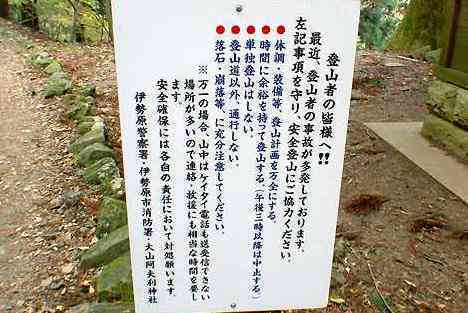 登山者の皆様へ!!
最近、登山者の事故が多発しております。
左記事項を守り、安全登山にご協力ください。
●体調・装備等、登山計画を万全にする。
●時間に余裕を持って登山する。(午後三時以降は中止する。)
●単独登山はしない。
●登山道以外、通行しない。
●落石・崩落等、に充分注意してください。
※万一の場合、山中はケイタイ電話も送受信できない
場所が多いので連絡・救援にも相当な時間を要し
ます。
安全確保には各自の責任において対処願います。
伊勢原警察署・伊勢原市消防署・大山阿夫利神社